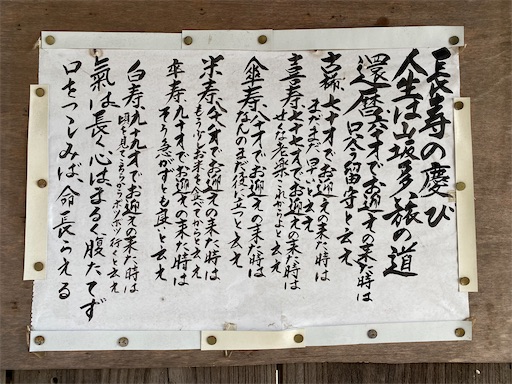 長寿の慶び
人生は山坂多い旅の道
還暦六十才でお迎えの来た時は
只今留守と云え
古稀、七十才でお迎えの来た時は
まだまだ早いと云え
喜寿、七十七才でお迎えの来た時は
せくな老楽これからよと云え
傘寿、八十才でお迎えの来た時は
なんのまだ役に立つと云え
米寿、八十八才でお迎えの来た時は
もう少しお米を食べてからと云え
卒寿、九十才でお迎えの来た時は
そう急がずとも良いと云え
白寿、九十九才でお迎えの来た時は
頃を見てこちらからボツボツ行くと云え
氣は長く心はまるく腹たてず
口をつつしめば命長らえる